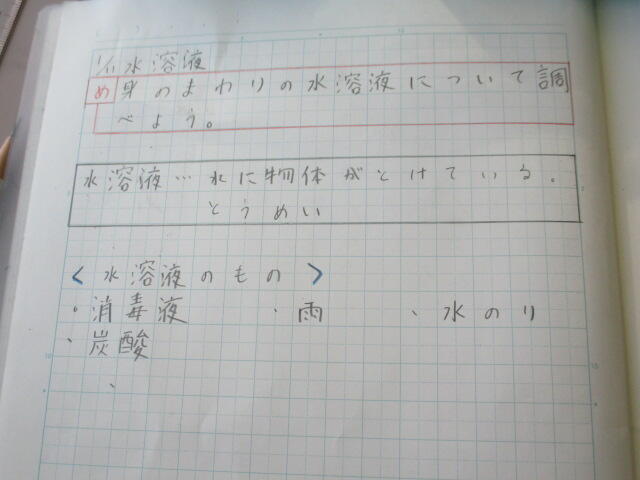 1/1 水溶液
め 身のまわりの水溶液について調
べよう。
水溶液…水に物体がとけている。
とうめい
<水溶液のもの>
・消毒液 ・雨 ・水のり
・炭酸
・